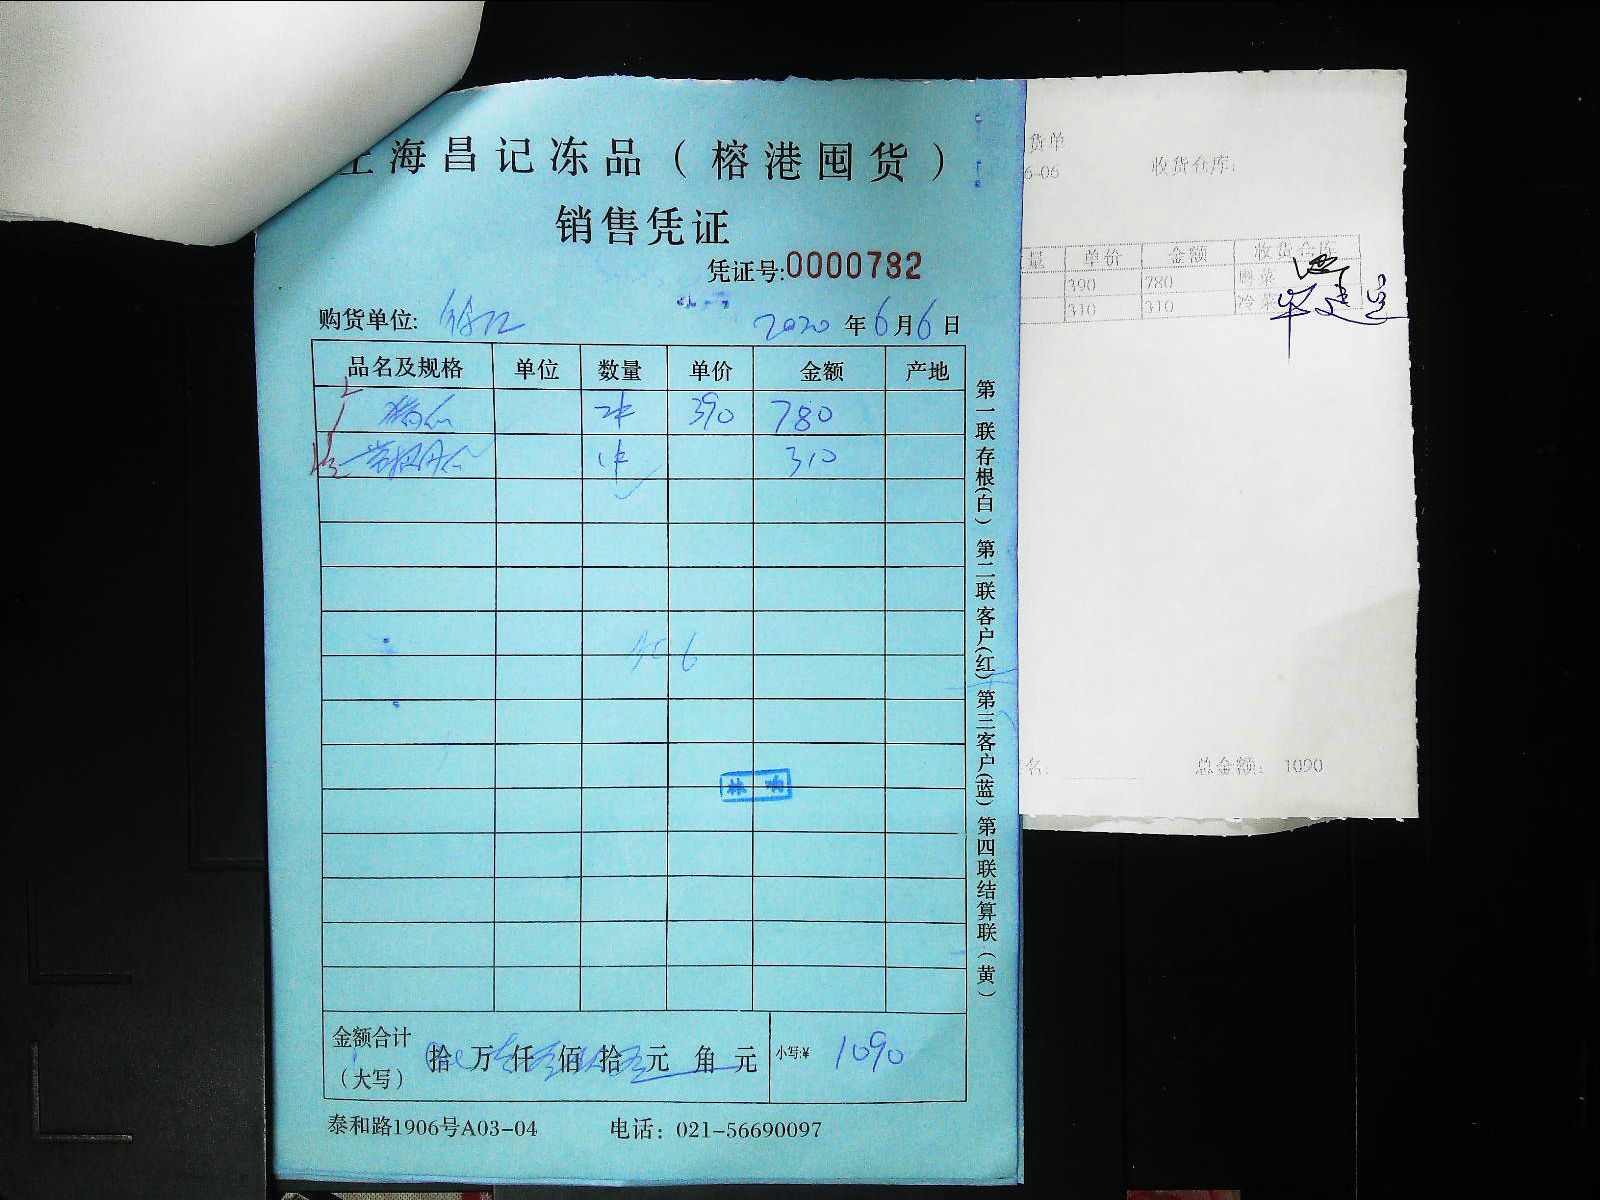 上海昌记冻品（榕港囤货）
销售凭证
凭证号:0000782
购货单位:
2020年6月6日
品名及规格 单位 数量 单价 金额 产地
2件 390 780
1件 310
第一联存根(白) 第二联客户(红) 第三客户(蓝) 第四联结算联(黄)
金额合计（大写） 拾 万 仟 佰 拾 元 角 元 小写:¥ 1090
泰和路1906号A03-04 电话：021-56690097
货单
6-06 收货仓库:
量 单价 金额 收货仓库
390 780 粤菜
310 310 冷菜
名: 总金额: 1090